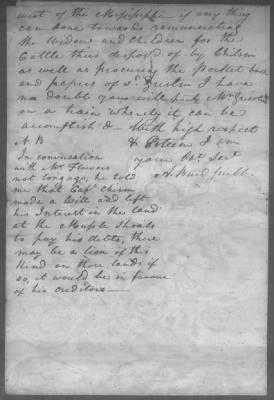 west of the Missisippi if any thing
can done towards remunerating
the Widow and children for the
Cattle thus disposed of by Chisem
as well as procuring the Pocket book
and papers of I have
no doubt you will put Mr
on a train whereby it can be
accomplish'd — With high respect
& Esteem I am
your Obt Sert
N. B
In conversation
with Mr Flowers
not long ago, he told
me that Capt Chism
made a Will and left
his Interest in the land
at the Musple Shoals
to pay his debts, there
may be a lien of this
kind on those lands if
so, it would be in favour
of his creditors —